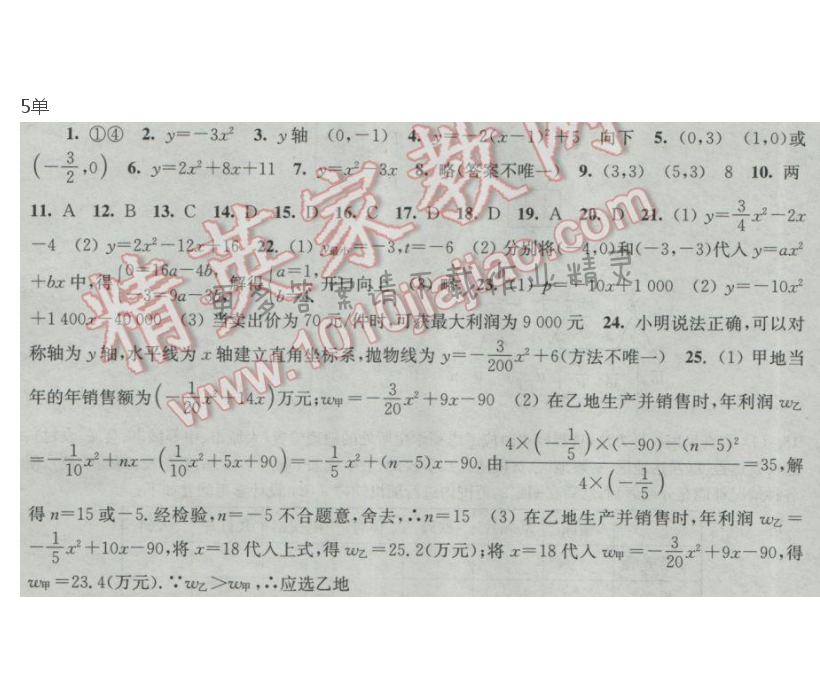 5单
1. ①④ 2. y=-3x² 3. y轴 (0,-1) 4. y=-2(x-1)²+5 向下 5. (0,3) (1,0)或
(-3/2,0) 6. y=2x²+8x+11 7. y=x²-3x 8. 略(答案不唯一) 9. (3,3) (5,3) 8 10. 两
11. A 12. B 13. C 14. D 15. D 16. C 17. D 18. D 19. A 20. D 21. (1) y=3/4x²-2x
-4 (2) y=2x²-12x+16 22. (1) =-3,t=-6 (2) 分别将(-4,0)和(-3,-3)代入y=ax²
+bx中,得{0=16a-4b, -3=9a-3b, 解得{a=1, b=4. 开口向上 (3) 略 23. (1) p=-10x+1 000 (2) y=-10x²
+1 400x-40 000 (3) 当卖出价为70元/件时,可获最大利润为9 000元 24. 小明说法正确,可以对
称轴为y轴,水平线为x轴建立直角坐标系,抛物线为y=-3/200x²+6(方法不唯一) 25. (1) 甲地当
年的年销售额为(-1/20x²+14x)万元;w甲=-3/20x²+9x-90 (2) 在乙地生产并销售时,年利润w乙
=-1/10x²+nx-(1/10x²+5x+90)=-1/5x²+(n-5)x-90.由4×(-1/5)×(-90)-(n-5)²/4×(-1/5)=35,解
得n=15或-5.经检验,n=-5不合题意,舍去,∴n=15 (3) 在乙地生产并销售时,年利润w乙=
-1/5x²+10x-90,将x=18代入上式,得w乙=25.2(万元);将x=18代入w甲=-3/20x²+9x-90,得
w甲=23.4(万元).∵w乙>w甲,∴应选乙地
精英家教网
www.1010jiajiao.com
更多答案请下载作业精灵